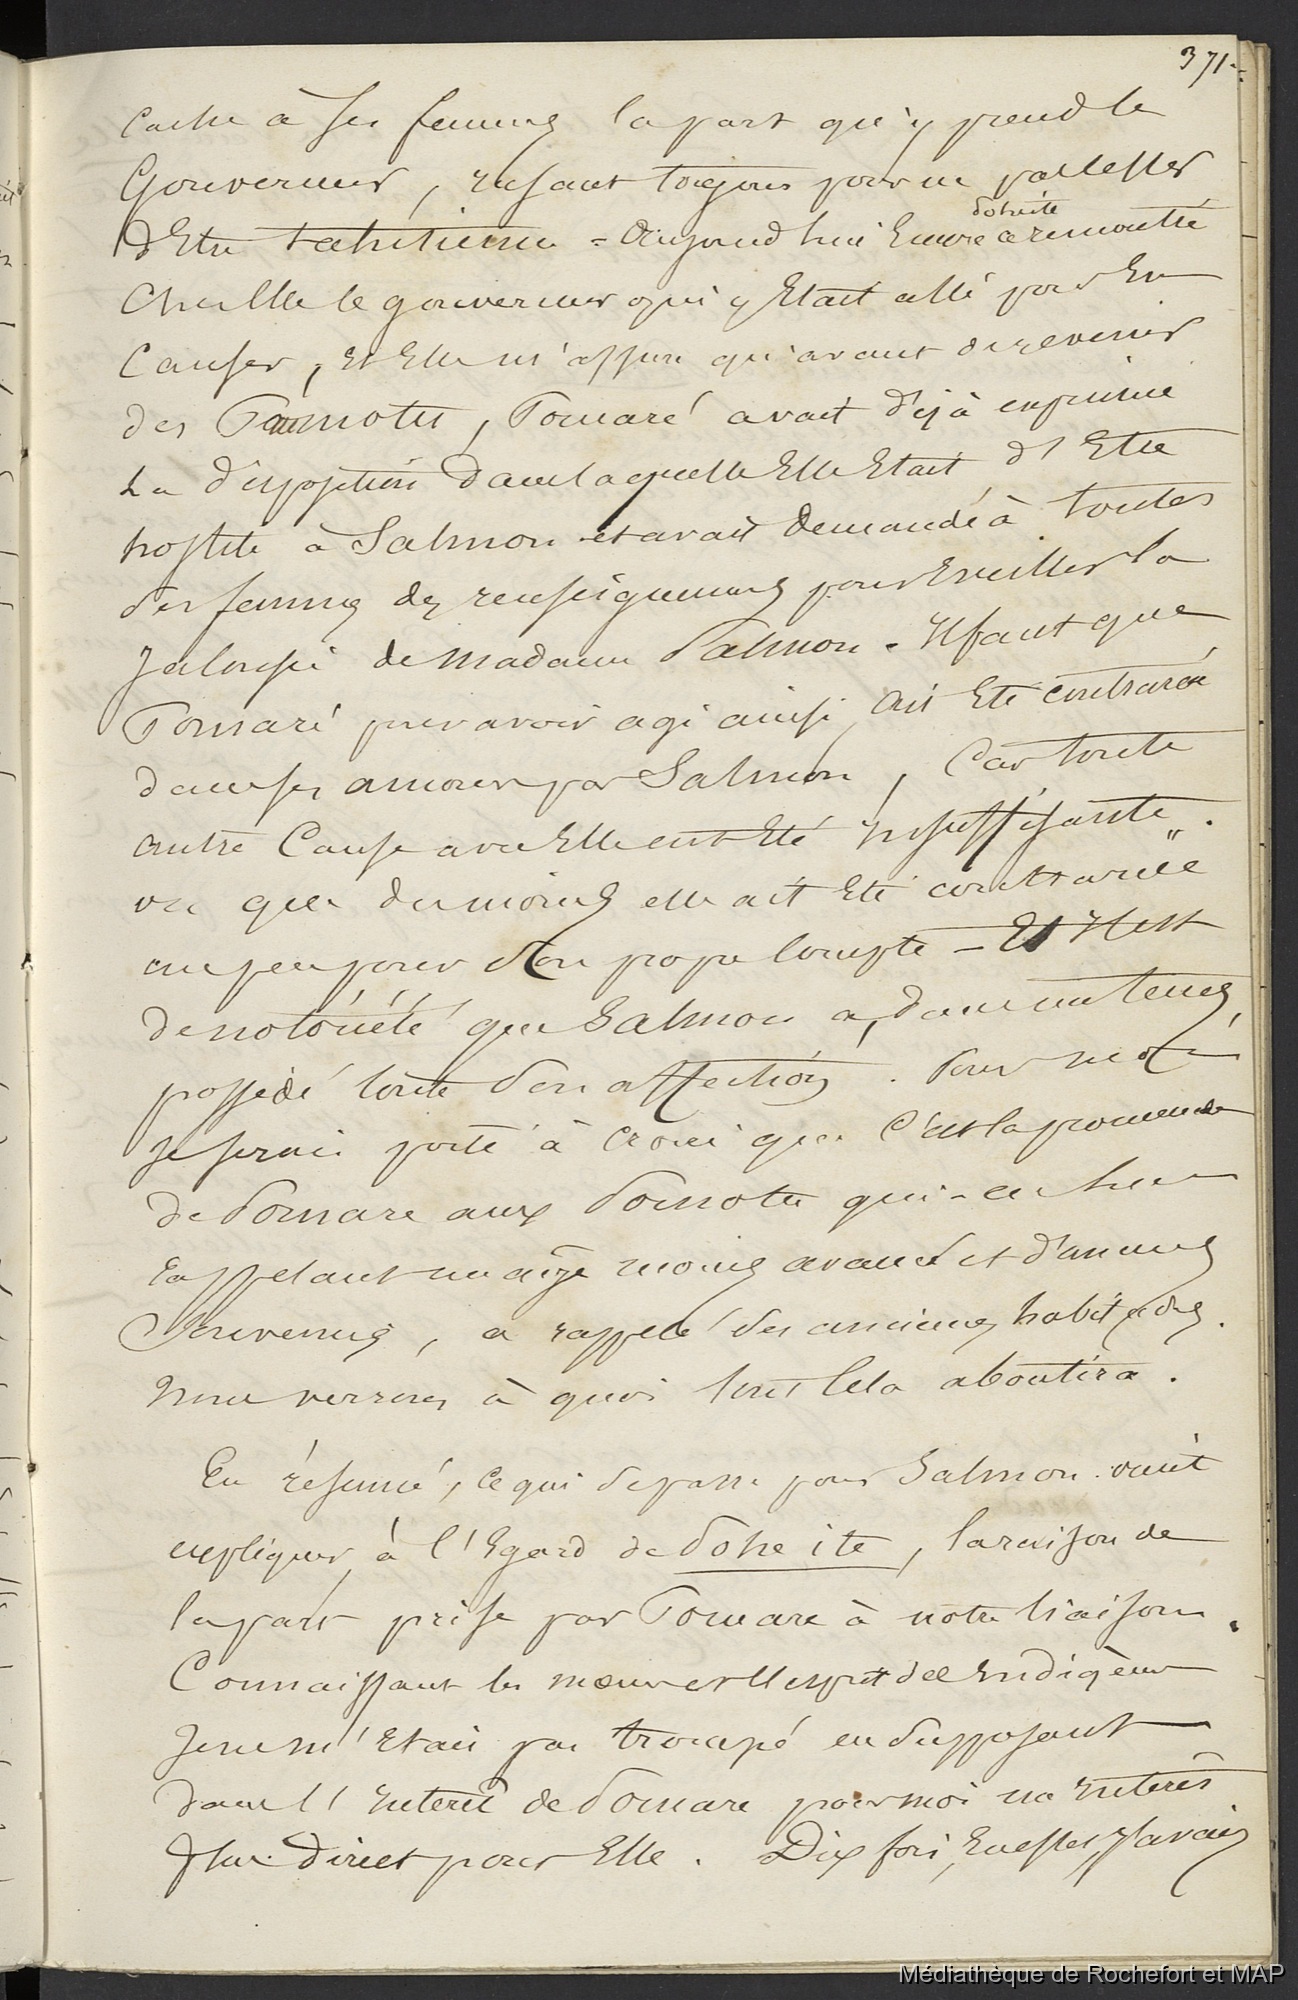 371.
cache à ses femmes la part qu'y prend le
Gouverneur, rusant toujours pour ne pas cesser
d'Etre tahitienne = Aujourd'hui Encore a remontré
Poheite
Chez Elle le gouverneur qui y Etait allé pour En
Causer, Et Elle m'assure qu'avant de revenir
des Pomotu, Pomaré avait déjà exprimé
La disposition dans laquelle Elle Etait d'Etre
hostile à Salmon et avait demandé à toutes
ses femmes des renseignemens pour Eveiller la
Jalousie de madame Salmon. Il faut que
Pomaré pour avoir agi ainsi, ait Eté contrariée
dans ses amours par Salmon, Car toute
autre Cause avec Elle eut Eté insuffisante.
ou que du moins elle ait Eté contrariée
un peu pour son propre Compte - Et Il est
de notoriété que Salmon a, dans un tems,
possédé toute son affection. Pour moi
je serais porté à croire que c'est la promenade
de Pomare aux Pomotu qui - en lui
rappelant un age moins avancé et d'anciens
Souvenirs, a rappelé des anciennes habitudes.
Nous verrons à quoi tout Cela aboutira.
En résumé, Ce qui se passe pour Salmon vient
expliquer, à l'Egard de Poheite, la raison de
la part prise par Pomare à notre liaison.
Connaissant les moeurs et l'esprit des Indigènes
Je ne m'Etais pas trompé en supposant
dans l'Interêt de Pomare pour moi un Interêt
plus direct pour Elle. Dix fois, En effet, J'avais
Médiathèque de Rochefort et MAP